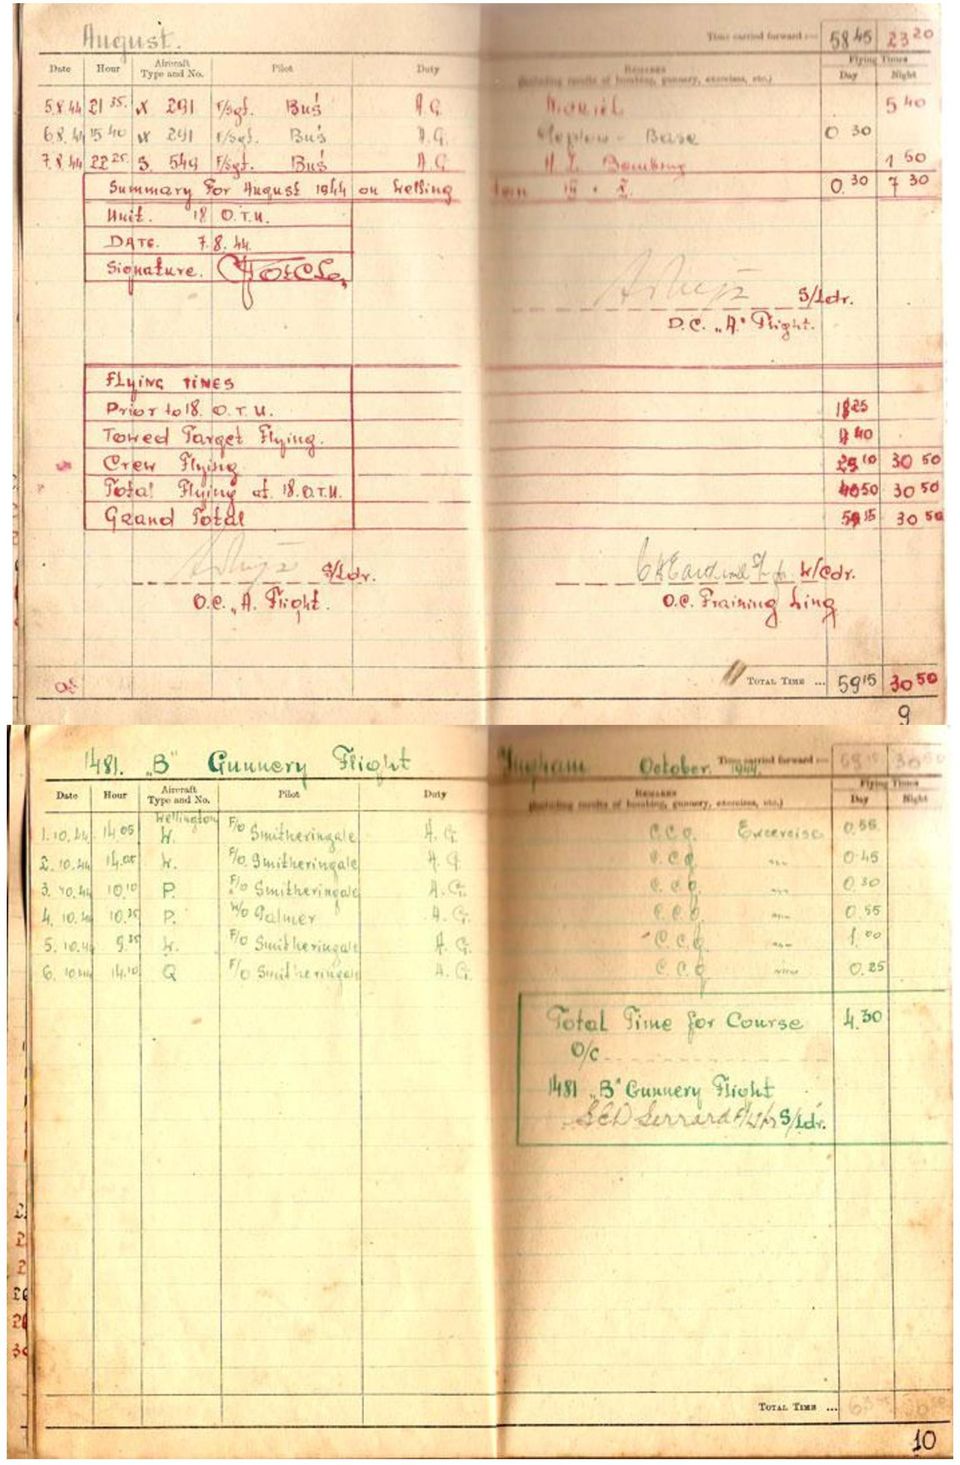 August. Time carried forward :— 58 45 23 20
Flying Times
Date Hour Aircraft Type and No. Pilot Duty Remarks (including results of bombing, gunnery, exercises, etc.) Day Night
5.8.44 21 35. X 291 F/Sgt. Buś A.G. 5 40
6.8.44 15 40 X 291 F/Sgt. Buś A.G. Base 0 30
7.8.44 22 25. S. 549 F/Sgt. Buś A.G. H.L. Bombing 1 50
Summary For August 1944 on Welling ton III • X. 0.30 7 30
Unit. 18 O.T.U.
DATE. 7.8.44.
Signature.
S/Ldr.
O.C. „A" Flight.
FLYING TIMES
Prior to 18. O.T.U. 18 25
Towed Target Flying. 40
Crew Flying 10 30 50
Total Flying at 18. O.T.U. 40 50 30 50
Grand Total 59 15 30 50
S/Ldr. W/Cdr.
O.C. „A. Flight. O.C. Training Wing
TOTAL TIME ... 59 15 30 50
9
1481. „B" Gunnery Flight Ingham October. 1944. Time carried forward :— 59 15 30 50
Flying Times
Date Hour Aircraft Type and No. Pilot Duty Remarks (including results of bombing, gunnery, exercises, etc.) Day Night
Wellington
1.10.44 14 05 W. F/O Smitheringale A.G. C.C.G. Excercise 0.55
2.10.44 14.05 W. F/O Smitheringale A.G. C.C.G. —„— 0.45
3.10.44 10 10 P. F/O Smitheringale A.G. C.C.G. —„— 0.30
4.10.44 10.35 P. W/O Palmer A.G. C.C.G. —„— 0.55
5.10.44 9 35 W. F/O Smitheringale A.G. C.C.G. —„— 1.00
6.10.44 14.10 Q F/O Smitheringale A.G. C.C.G. —„— 0.25
Total Time for Course 4.30
O/C
1481 „B" Gunnery Flight
S/Ldr.
TOTAL TIME ...
10